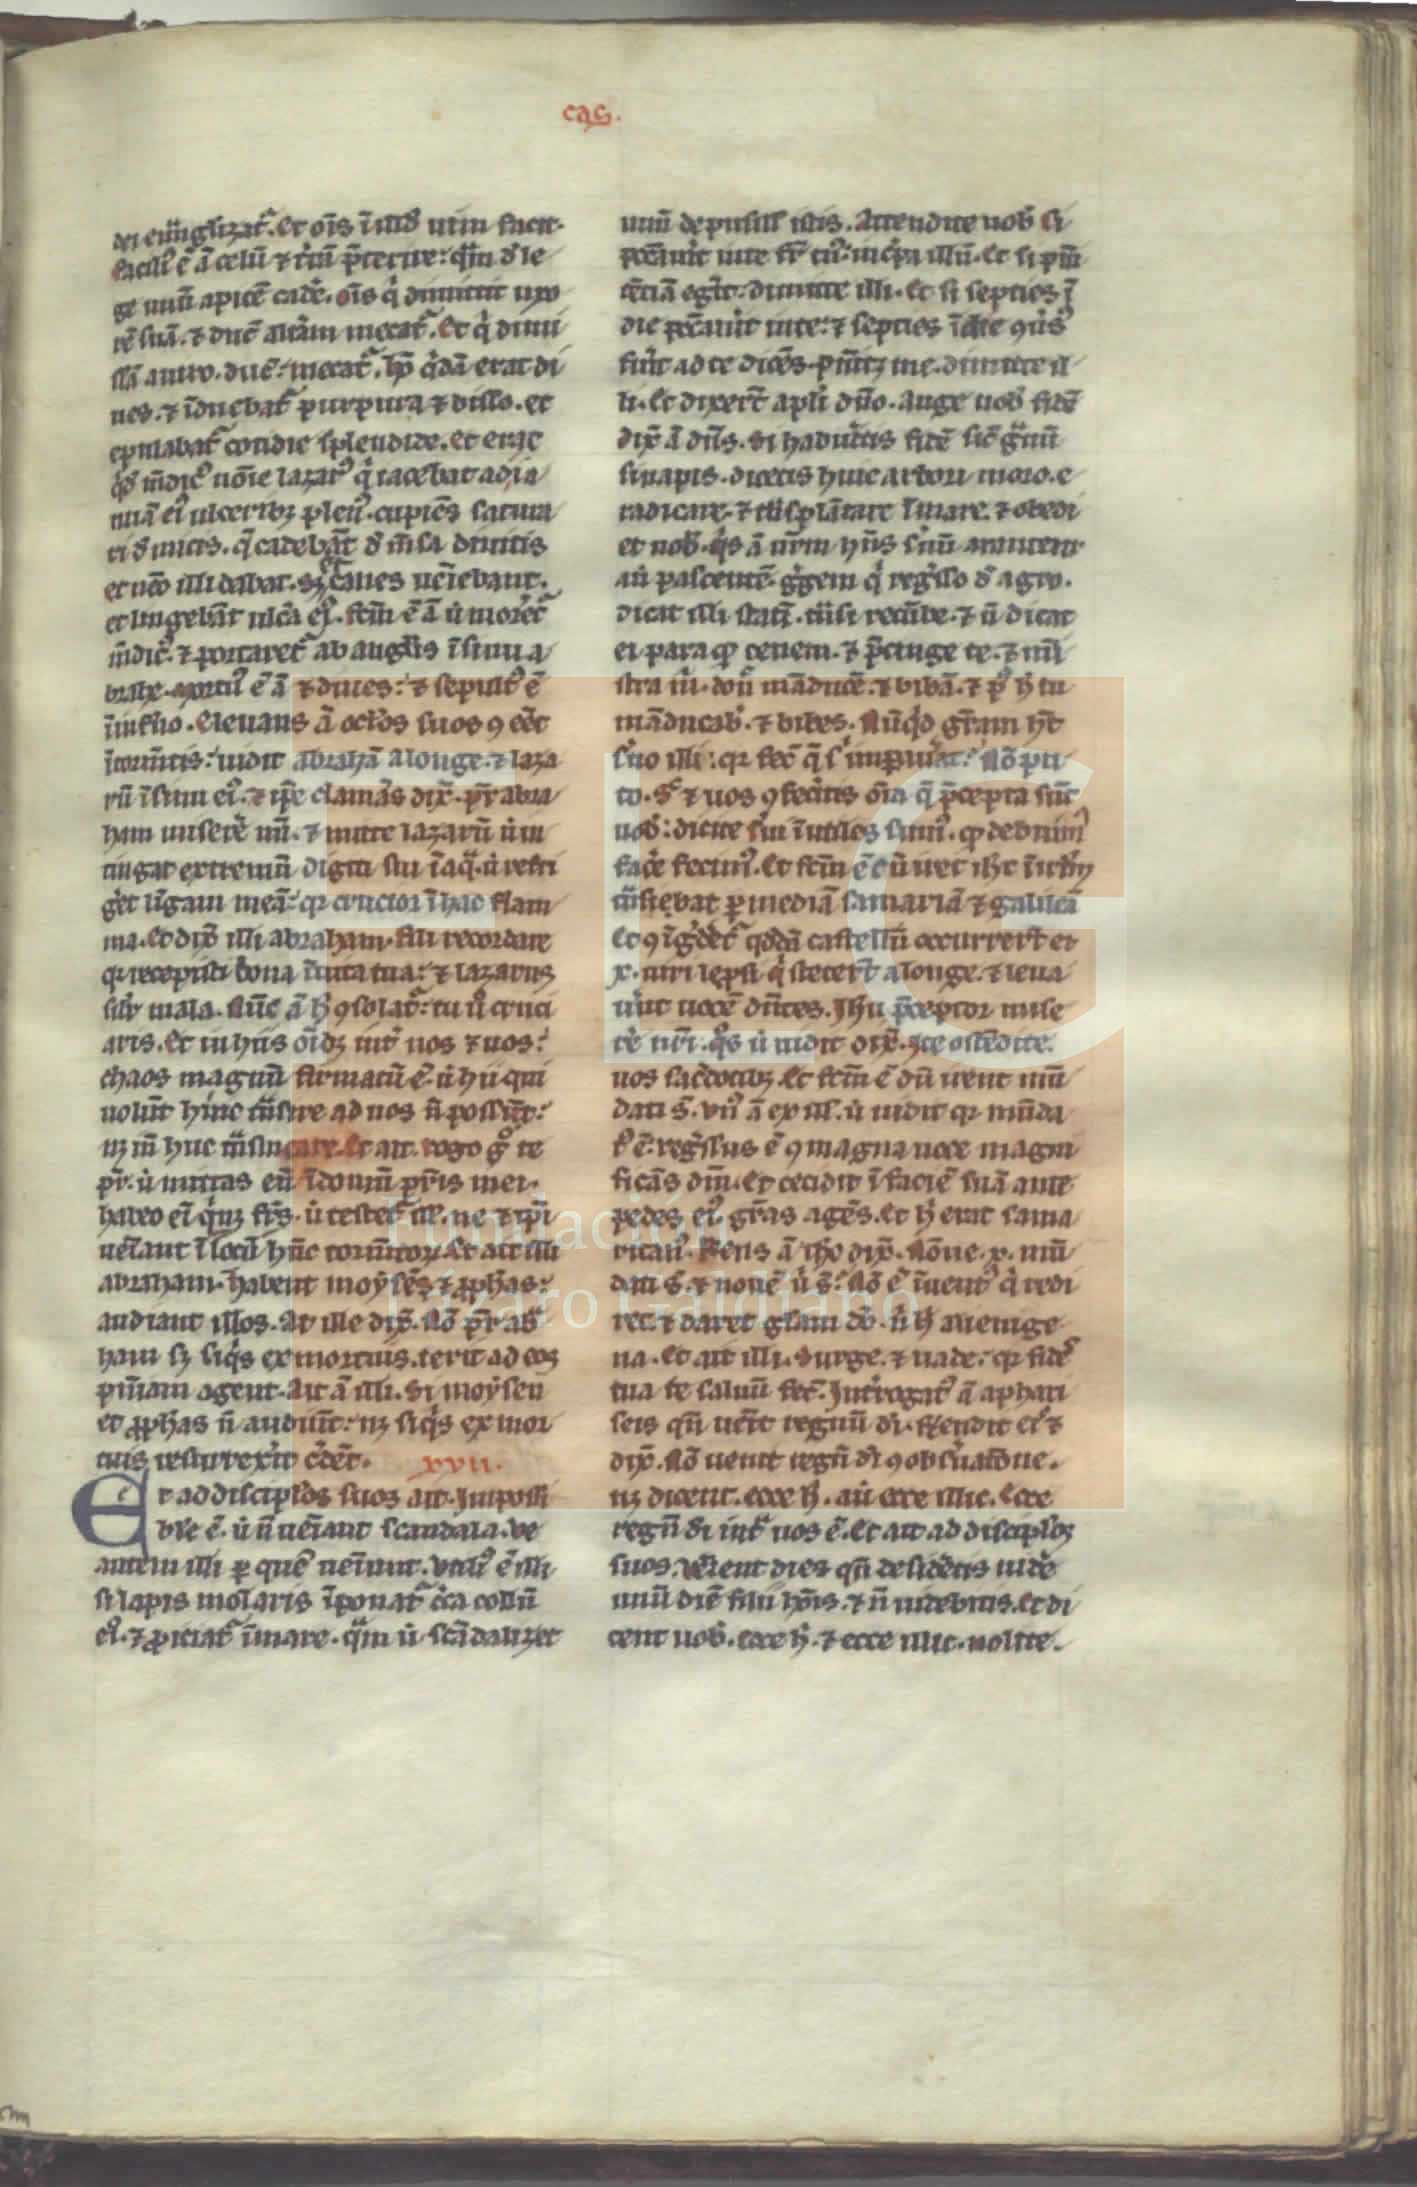 cas.
dei eu̅ngl̅izat᷑. Et oi̅s i̅ illud̅ uim facit.
facili᷒ e̅ a̅ celu̅ ⁊ t̅ra̅ p̅terire: q̅m d̅ le
ge unu̅ apice̅ cade̅. oi̅s q̇ dimittit uxo
re̅ sua̅. ⁊ duc̅ alt̅am mecat᷑. Et q̇ dimi
ssa̅ a uiro. duc̅: mecat᷑. ho̅ q̇da̅ erat di
ues. ⁊ i̅duebat᷑ purpura ⁊ bisso. et
epulabat᷑ cotidie splendide. et erat
q̇d̅ me̅dic᷒ no̅ie lazar᷒ q̇ iacebat ad ia
nua̅ ei᷒ ulcerib; plen᷒. cupie̅s satura
ri d̅ micis. q̅ cadeba̅t d̅ me̅sa diuitis
et nemo illi dabat. sꝫ et canes ueniebant.
et lingeba̅t ulc̅a ei᷒. f̅c̅m e̅ a̅ ut moreret᷑
me̅dic᷒. ⁊ portaret᷑ ab angl̅is i̅ sinu a
brahe. mortu᷒ e̅ a̅ ⁊ diues: ⁊ sepult᷒ e̅
i̅ inferno. Eleuans a̅ oculos suos cu̅ eet
i̅ torme̅tis: uidit abraha̅ a longe. ⁊ laza
ru̅ i̅ sinu ei᷒. ⁊ ip̅e clama̅s dix̅. p̅r abra
ham miserere mei. ⁊ mitte lazaru̅ ut in
tingat extremu̅ digiti sui i̅ aqua̅. ut refri
geret li̅gam mea̅: q̇r crucior i̅ hac flam
ma. Et dix̅ illi abraham. fili recordare
q̇r recepisti bona i̅ uita tua: ⁊ lazarus
sil̅r mala. Nu̅c a̅ h̅ ꝯsolat᷑: tu u̅ cruci
aris. Et in hiis oi̅b; int̅ nos ⁊ uos:
chaos magnu̅ firmatu̅ e̅. ut hii qui
uolu̅t hi̅nc tra̅sire ad uos n̅ possi̅t:
nꝫ in̅ huc tra̅smeare. Et ait. rogo g̊ te
p̅r. ut mittas eu̅ i̅ domu̅ p̅ris mei.
habeo ei̅ q̇nqꝫ fr̅s. ut testet᷑ ill. ne ⁊ ip̅i
uenia̅nt i̅ locu̅ hu̅c torme̅toꝝ. Et ait illi
abraham. habent moyse̅s ⁊ ꝓphas:
audiant illos. At ille dix̅. No̅ p̅r abra
ham sꝫ siq̇s ex mortuis ierit ad eos
pni̅am agent. Ait a̅ illi. Si moysen
et ꝓphas n̅ audiu̅t: nꝫ siq̇s ex mor
tuis resurrexit c̅det. xvii.
Et ad discip̅los suos ait. Impossi
bile e̅. ut n̅ uenia̅nt scandala. Ve
autem illi ꝑ que̅ ueniu̅nt. Vtili᷒ e̅ illi
si lapis molaris i̅ponat᷑ circa collu̅
ei᷒. ⁊ ꝓiciat᷑ i̅ mare. q̅m ut sca̅dalizet
unu̅ de pusill̅ istis. Attendite uob̅ si
peccauit in te fr̅ tu᷒: inc̅pa illu̅. Et si peni
te̅cia̅ egerit: dimitte illi. Et si septies i̅
die peccauit in te: ⁊ septies i̅ die ꝯuersus
fuit ad te dice̅s. penitet me. dimitte il
li. Et dixer̅t apl̅i dn̅o. Auge nob̅ fide̅
dix̅ a̅ dn̅s. Si habueritis fide̅ sic̅ g̅nu̅
sinapis. dicetis huic arbori moro. e
radicare. ⁊ tra̅spla̅ntare i̅ mare. ⁊ obedi
et uob̅. q̇s a̅ ur̅m hn̅s seruu̅ arantem
aut pascente̅. gregem q̇ regresso d̅ agro.
dicat illi stati̅. tra̅nsi recu̅be. ⁊ n̅ dicat
ei para q̊ cenem. ⁊ p̅cinge te. ⁊ mi̅
stra m̅. donec ma̅duce̅. ⁊ biba̅. ⁊ p᷒ h̅ tu
ma̅ducab̅. ⁊ bibes. Nu̅q̇d gr̅am ht̅
seruo illi: q̇r fec̅ q̅ s᷒ impauerat? No̅ pu
to. Sic ⁊ uos cu̅ feceritis oi̅a q̅ p̅cepta su̅t
uob̅: dicite serui i̅utiles sum᷒. q̊ debuim᷒
facere fecim᷒. Et f̅c̅m e̅ du̅ iret ih̅c i̅ irl̅m
tra̅nsiebat ꝑ media̅ samaria̅ ⁊ galilea̅
Et cu̅ i̅gredet᷑ q̇dda̅ castellu̅ occurrer̅t ei
x. uiri lep̅si q̇ steter̅t a longe. ⁊ leua
uer̅t uoce̅ dice̅tes. Ihu̅ p̅ceptor mise
re̅ nr̅i. q̊s ut uidit dix̅. Ite oste̅dite
uos sacerdotib;. Et f̅c̅m e̅ du̅ irent mu̅
dati s̅. Vn᷒ a̅ ex ill̅. ut uidit q̇r mu̅da
t᷒ e̅. regressus e̅ cu̅ magna uoce magni
fica̅s dm̅. Et cecidit i̅ facie̅ sua̅ ante
pedes ei᷒ gr̅as age̅s. Et h̅ erat sama
ritan᷒. Rn̅s a̅ ih̅c dix̅. No̅ne. x. mu̅
dati s̅. ⁊ noue̅ u̅ s̅? No̅ e̅ i̅uent᷒ q̇ redi
ret. ⁊ daret gl̅am do̅. n̅ h̅ alienige
na. Et ait illi. Surge. ⁊ uade: q̇r fides
tua te saluu̅ fec̅. Int̅rogat᷒ a̅ a phari
seis qn̅ ueni̅t regnu̅ di̅. Rn̅dit ei᷒ ⁊
dix̅. No̅ uenit regn̅ di̅ cu̅ obseruatio̅ne.
nꝫ dicent. ecce h̅. aut ecce illic. Ecce
regn̅ di̅ int̅ uos e̅. Et ait ad discip̅los
suos. Ve̅nient dies qn̅ desideretis uide̅
unu̅ die̅ filii ho̅is. ⁊ n̅ uidebitis. Et di
cent uob̅. ecce h̅. ⁊ ecce illic. nolite.
FLG
Fundación
Lázaro Galdiano